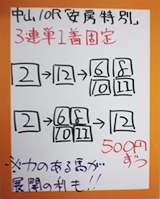 中山10R 安房特別
3連単1着固定
2 → 12 → 6 8 10 11
2 → 6 8 10 11 → 12
500円ずつ
※力のある馬が
展開の利も!!